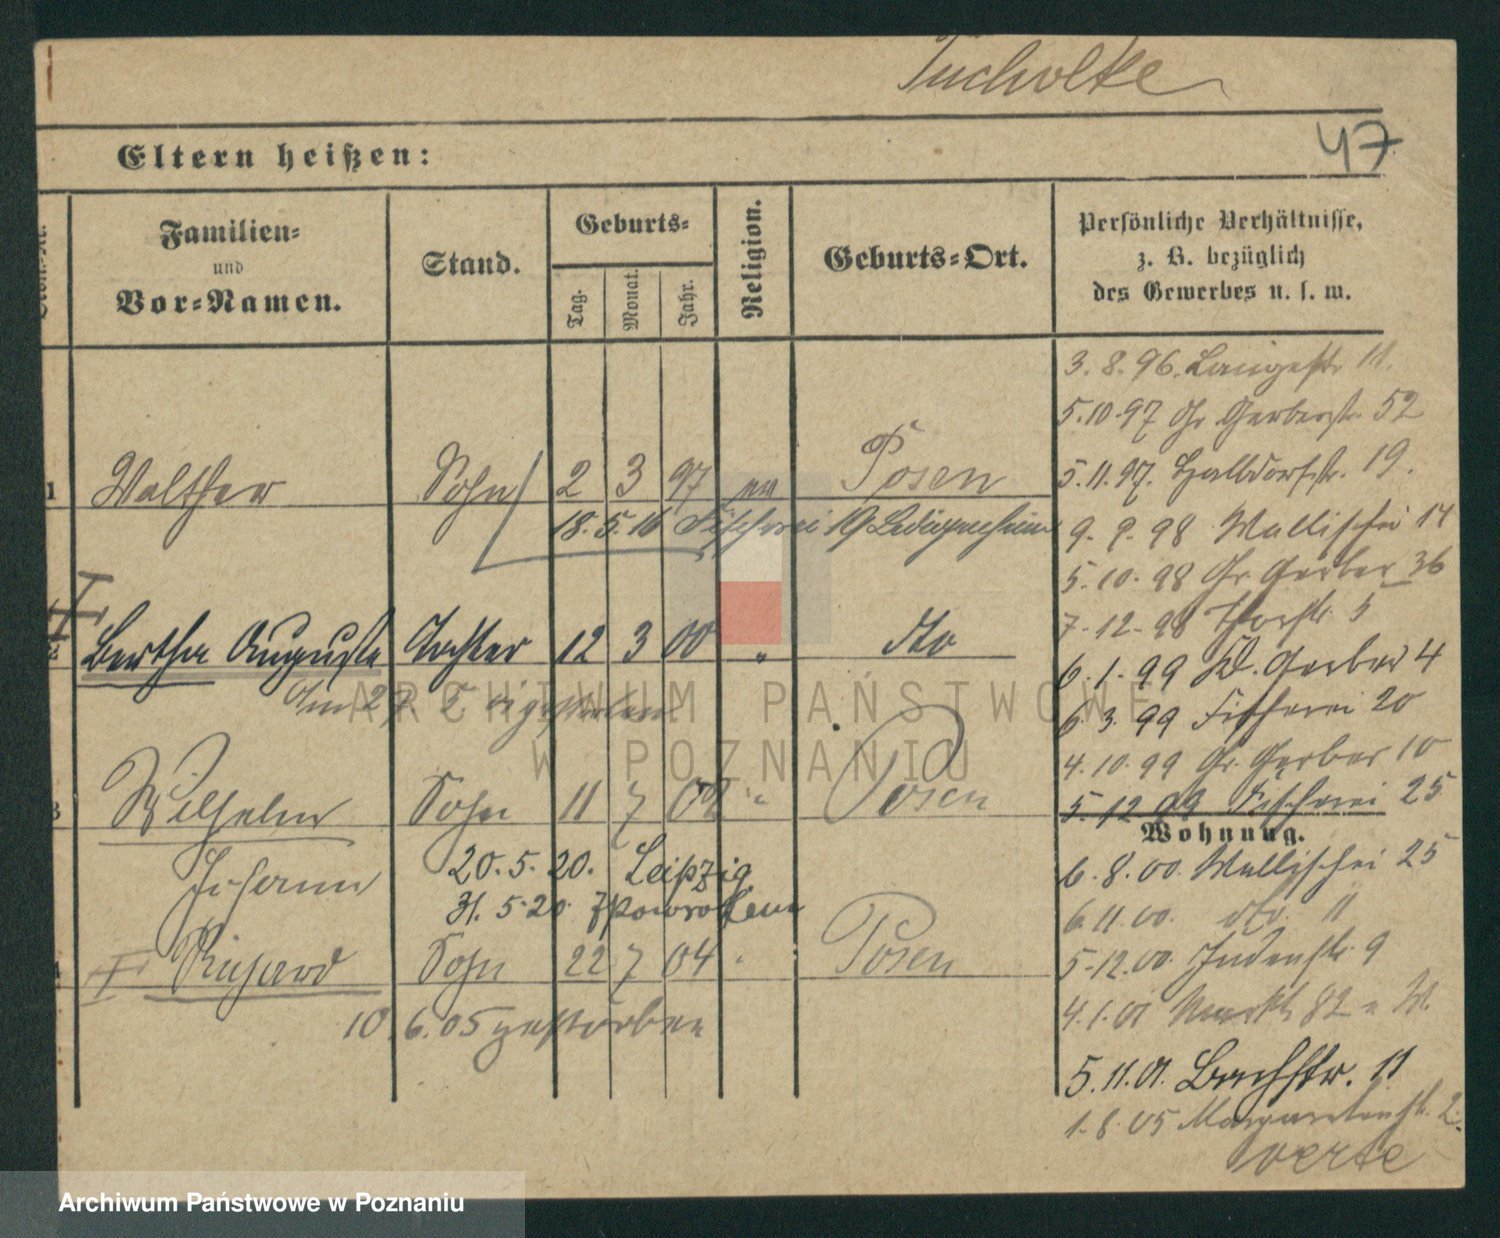 Tucholke
47
Eltern heißen:
Familien=
und
Vor=Namen.
Stand.
Geburts=
Tag.
Monat.
Jahr.
Religion.
Geburts=Ort.
Persönliche Verhältnisse,
z. B. bezüglich
des Gewerbes u. s. w.
3. 8. 96. Langestr. 11.
5. 10. 97 Gr Gerberstr. 52
5. 11. 97. Halbdorfstr. 19.
1 Walther Sohn 2 3 97 ev Posen
18. 5. 16 Fischerei 19
9. 9. 98 Wallischei 14
5. 10. 98 Gr. Gerber 36
7. 12. 98 Thorstr. 5
2 Bertha Auguste Tochter 12 3 00 " dto
6. 1. 99 Kl. Gerber 4
Am 27 gestorben
6. 3. 99 Fischerei 20
4. 10. 99 Gr. Gerber 10
3 Wilhelm Sohn 11 7 02 " Posen
5. 12 99 Fischerei 25
Wohnung.
Johann
20. 5. 20. Leipzig
6. 8. 00. Wallischei 25
31. 5 20 z powrotem
6. 11. 00. dto. 11
4 Richard Sohn 22 7 04 " Posen
5. 12. 00. Judenstr. 9
10. 6. 05 gestorben
4. 1. 01 Markt 82 n W.
5. 11. 01. Bachstr. 11
1. 8. 05 Margarethenstr. 2.
verte
ARCHIWUM PAŃSTWOWE
W POZNANIU
Archiwum Państwowe w Poznaniu